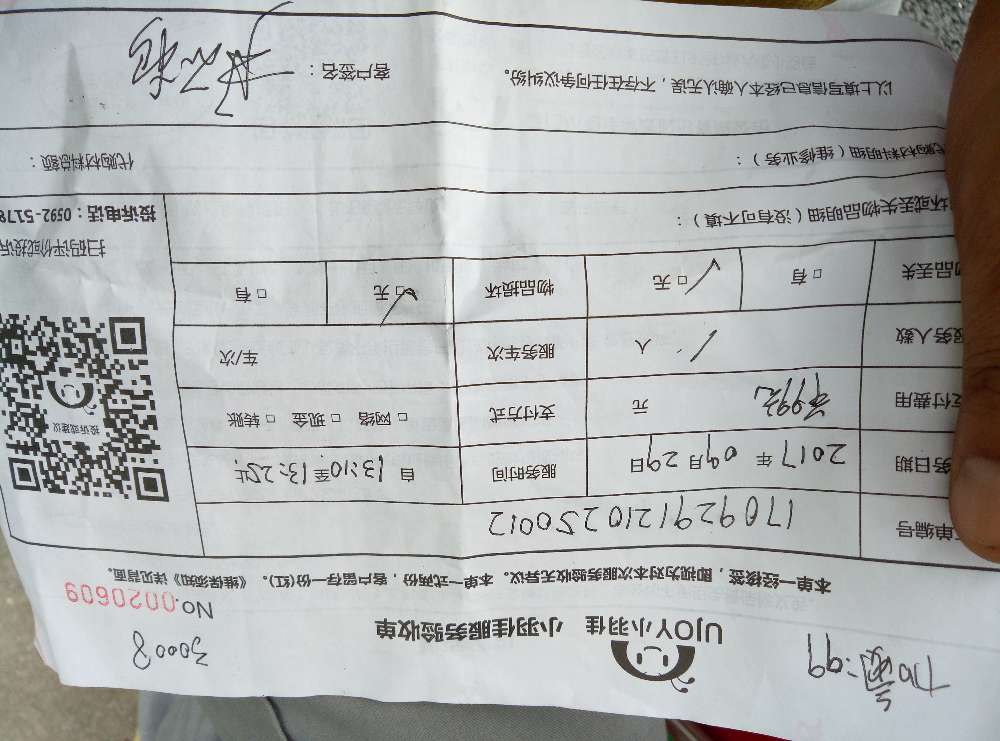 加氟:99
UJOY小羽佳 小羽佳服务验收单
30008
No.0020609
本单一经核签，即视为对本次服务验收无异议。本单一式两份，客户留存一份(红)。《维保须知》详见背面。
单编号 1709291210250012
务日期 2017年09月29日 服务时间 自13:10至13:25止
支付费用 99元 元 支付方式 □网络 □现金 □转账
投诉或建议
服务人数 1人 服务车次 车/次
物品丢失 □有 □无 物品损坏 □无 □有
扫码评价或投诉
坏或丢失物品明细（没有可不填）：
投诉电话：0592-5178
代购材料明细（维修业务）： 代购材料总额：
以上填写信息已经本人确认无误，不存在任何争议纠纷。 客户签名：